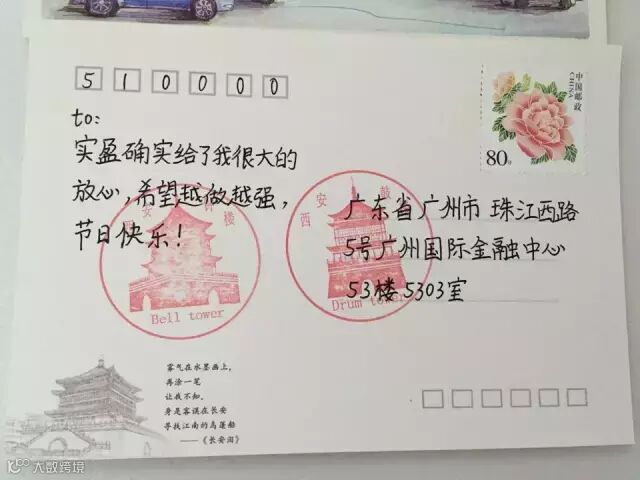 510000
to:
实盈确实给了我很大的
放心,希望越做越强,
节日快乐!
中国邮政
CHINA
80分
西安 钟楼
Bell tower
西安 鼓
Drum tower
广东省广州市 珠江西路
5号广州国际金融中心
53楼 5303室
雾气在水墨画上,
再涂一笔
让我不知,
身是客误在长安
寻找江南的乌篷船
——《长安雨》
大数跨境